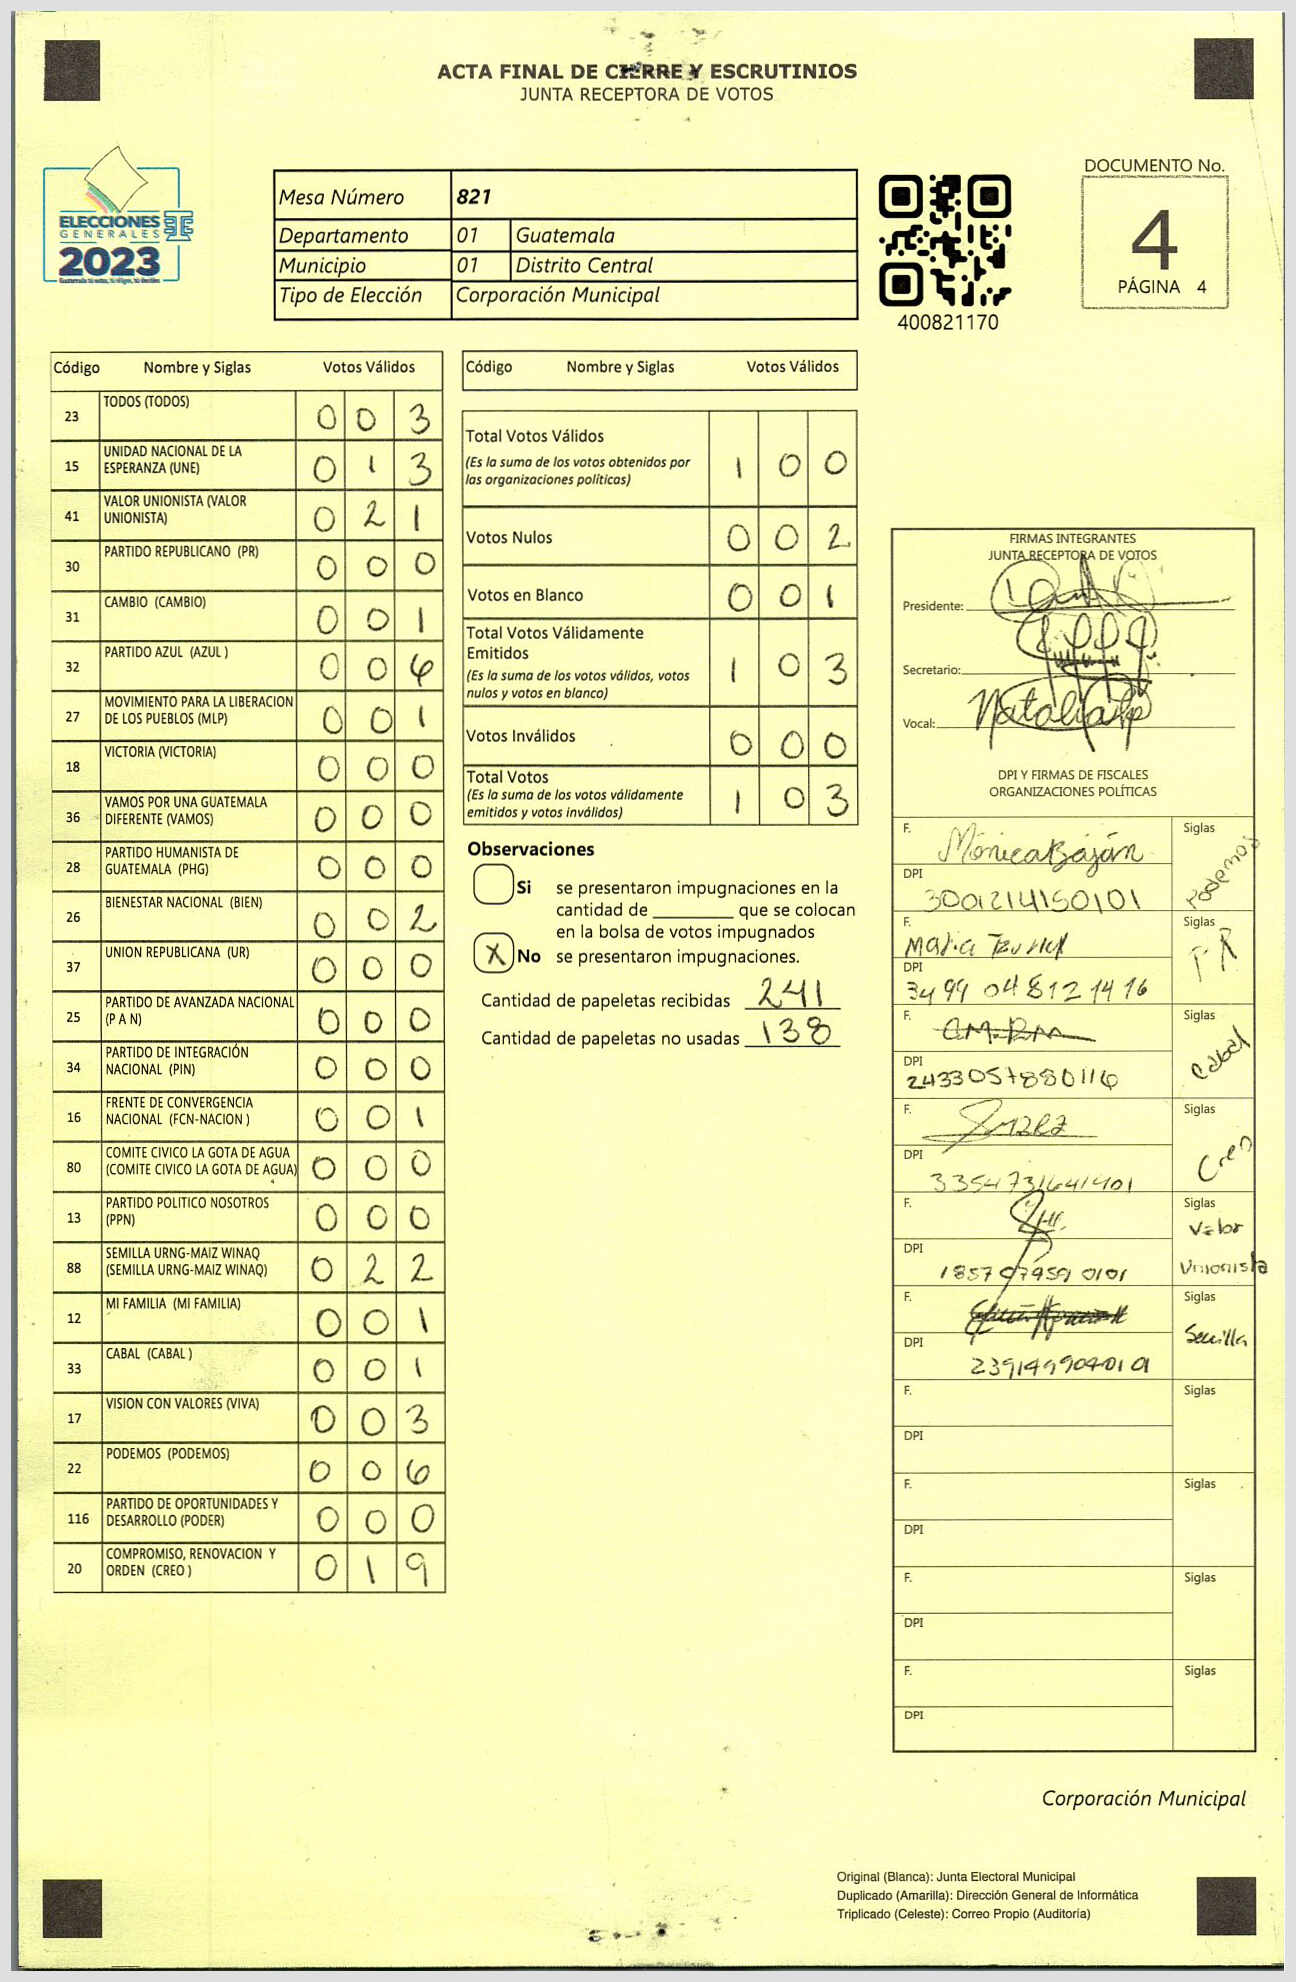 ACTA FINAL DE CIERRE Y ESCRUTINIOS
JUNTA RECEPTORA DE VOTOS
ELECCIONES
GENERALES
2023
Mesa Número 821
Departamento 01 Guatemala
Municipio 01 Distrito Central
Tipo de Elección Corporación Municipal
400821170
DOCUMENTO No.
4
PÁGINA 4
Código Nombre y Siglas Votos Válidos
23 TODOS (TODOS) 0 0 3
15 UNIDAD NACIONAL DE LA
ESPERANZA (UNE) 0 1 3
41 VALOR UNIONISTA (VALOR
UNIONISTA) 0 2 1
30 PARTIDO REPUBLICANO (PR) 0 0 0
31 CAMBIO (CAMBIO) 0 0 1
32 PARTIDO AZUL (AZUL ) 0 0 6
27 MOVIMIENTO PARA LA LIBERACION
DE LOS PUEBLOS (MLP) 0 0 1
18 VICTORIA (VICTORIA) 0 0 0
36 VAMOS POR UNA GUATEMALA
DIFERENTE (VAMOS) 0 0 0
28 PARTIDO HUMANISTA DE
GUATEMALA (PHG) 0 0 0
26 BIENESTAR NACIONAL (BIEN) 0 0 2
37 UNION REPUBLICANA (UR) 0 0 0
25 PARTIDO DE AVANZADA NACIONAL
(P A N) 0 0 0
34 PARTIDO DE INTEGRACIÓN
NACIONAL (PIN) 0 0 0
16 FRENTE DE CONVERGENCIA
NACIONAL (FCN-NACION ) 0 0 1
80 COMITE CIVICO LA GOTA DE AGUA
(COMITE CIVICO LA GOTA DE AGUA) 0 0 0
13 PARTIDO POLITICO NOSOTROS
(PPN) 0 0 0
88 SEMILLA URNG-MAIZ WINAQ
(SEMILLA URNG-MAIZ WINAQ) 0 2 2
12 MI FAMILIA (MI FAMILIA) 0 0 1
33 CABAL (CABAL ) 0 0 1
17 VISION CON VALORES (VIVA) 0 0 3
22 PODEMOS (PODEMOS) 0 0 6
116 PARTIDO DE OPORTUNIDADES Y
DESARROLLO (PODER) 0 0 0
20 COMPROMISO, RENOVACION Y
ORDEN (CREO ) 0 1 9
Código Nombre y Siglas Votos Válidos
Total Votos Válidos
(Es la suma de los votos obtenidos por
las organizaciones políticas) 1 0 0
Votos Nulos 0 0 2
Votos en Blanco 0 0 1
Total Votos Válidamente
Emitidos
(Es la suma de los votos válidos, votos
nulos y votos en blanco) 1 0 3
Votos Inválidos 0 0 0
Total Votos
(Es la suma de los votos válidamente
emitidos y votos inválidos) 1 0 3
Observaciones
Si se presentaron impugnaciones en la
cantidad de ________ que se colocan
en la bolsa de votos impugnados
X No se presentaron impugnaciones.
Cantidad de papeletas recibidas 241
Cantidad de papeletas no usadas 138
FIRMAS INTEGRANTES
JUNTA RECEPTORA DE VOTOS
Presidente:
Secretario:
Vocal:
DPI Y FIRMAS DE FISCALES
ORGANIZACIONES POLÍTICAS
F. Mónica Baján Siglas Podemos
DPI 3001214150101
F. Siglas PR
DPI 3499 04812 1416
F. Siglas Cabal
DPI 2433057880116
F. Siglas Creo
DPI 3354731641401
F. Siglas Valor
Unionista
DPI
F. Siglas Semilla
DPI 2391499040101
F. Siglas
DPI
F. Siglas
DPI
F. Siglas
DPI
F. Siglas
DPI
Corporación Municipal
Original (Blanca): Junta Electoral Municipal
Duplicado (Amarilla): Dirección General de Informática
Triplicado (Celeste): Correo Propio (Auditoría)